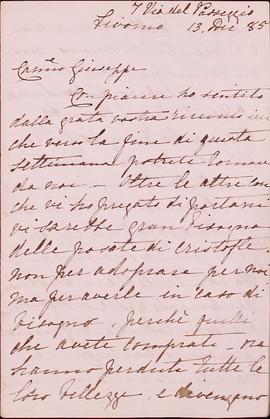 7 Via del Passeggio
Livorno 13. Dic 85
Carmo Giuseppe
Con piacere ho sentito
dalla grata vostra ricevuta
che verso la fine di questa
settimana potrete tornare
da noi. — Oltre le altre cose
che vi ho pregato di portarvi
vi sarebbe gran bisogno
delle posate di cristofle
non per adoprare per noi
ma per averle in caso di
bisogno, perchè quelle
che avete comprate, ora
hanno perduto tutte le
loro bellezze, e divengono